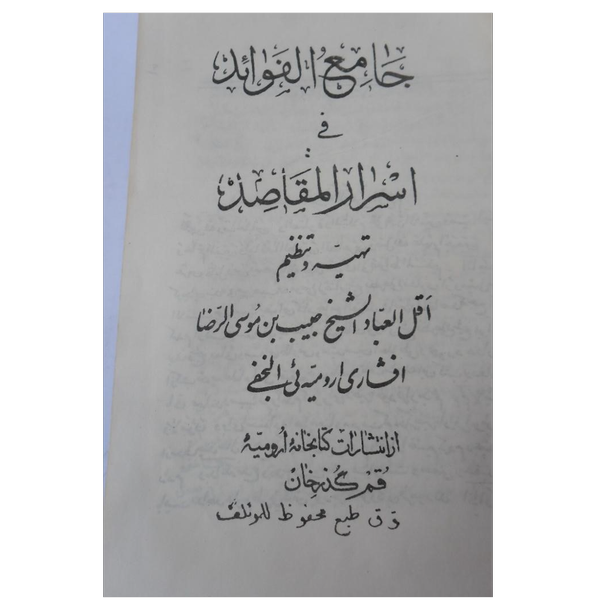 جامع الفوائد
في
اسرار المقاصد
تهیه و تنظیم
اقل العباد الشیخ حبیب بن موسی الرضا
افشاری ارومیه ئی النجفی
از انتشارات کتابخانهٔ ارومیّهٔ
قم گذرخان
ق طبع محفوظ للمؤلف